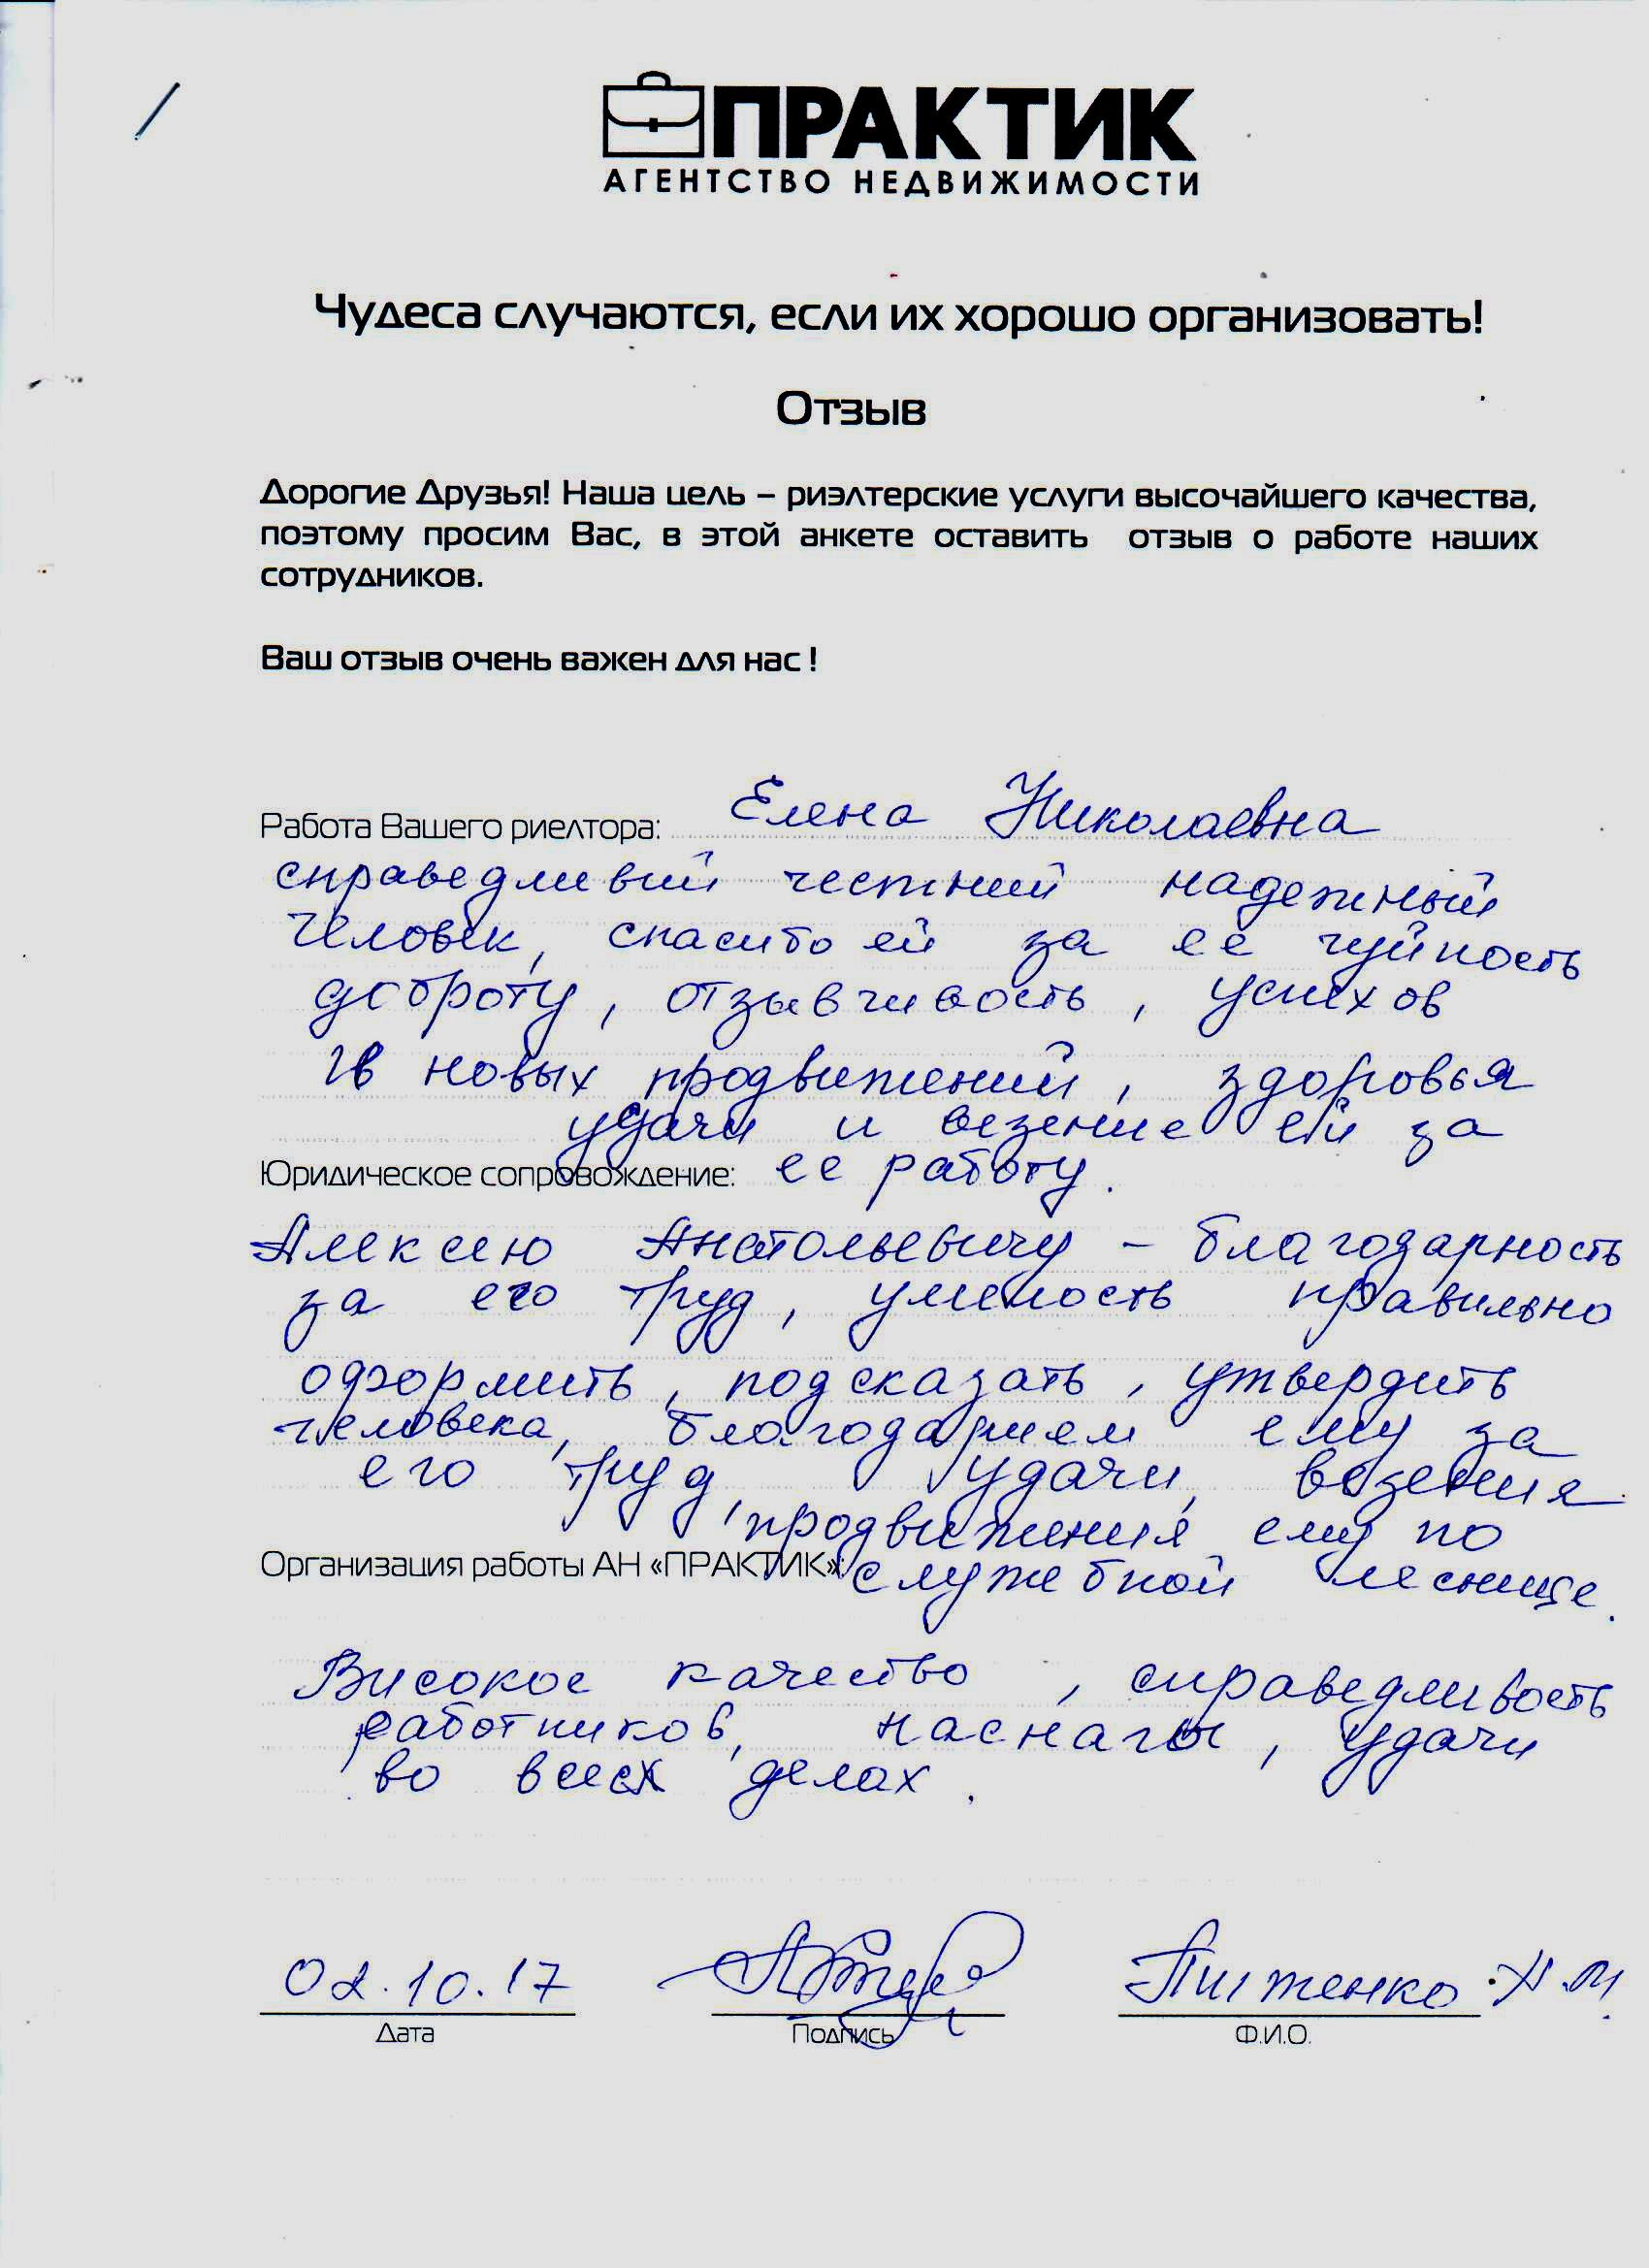 ПРАКТИК
АГЕНТСТВО НЕДВИЖИМОСТИ
Чудеса случаются, если их хорошо организовать!
Отзыв
Дорогие Друзья! Наша цель – риэлтерские услуги высочайшего качества,
поэтому просим Вас, в этой анкете оставить отзыв о работе наших
сотрудников.
Ваш отзыв очень важен для нас !
Работа Вашего риелтора: Елена Николаевна
справедливий честний надежный
человек, спасибо ей за ее чуйность
доброту, отзывчивость, успехов
и в новых продвижений, здоровья
удачи и везение ей за
Юридическое сопровождение: ее работу.
Алексею Анатольевичу – благодарность
за его труд, умелость правильно
оформить, подсказать, утвердить
человека, благодарием ему за
его труд, удачи, везения
продвижения ему по
Организация работы АН «ПРАКТИК»: служебной леснице.
Високое качество, справедливость
работников, наснагы, удачи
во всех делах.
02.10.17
Пиженко Н.М.
Дата Подпись Ф.И.О.